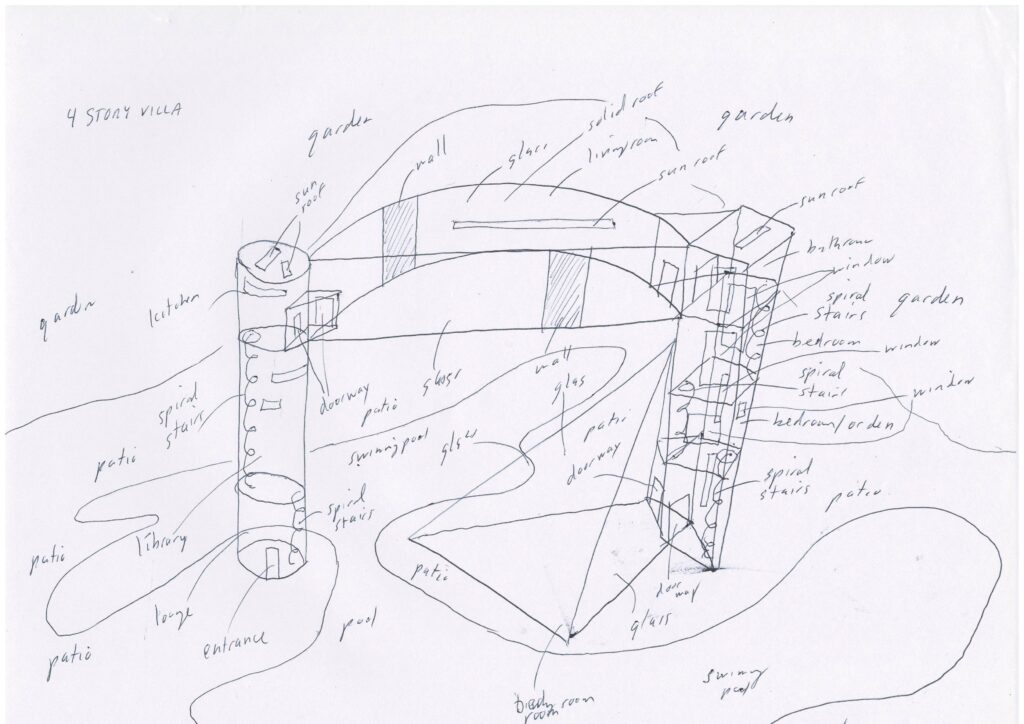 4 STORY VILLA
garden
solid roof
garden
wall
glass
livingroom
sun roof
sun
roof
sun roof
bathroom
window
garden
kitchen
spiral
stairs
garden
bedroom
window
spiral
stairs
window
doorway
glass
wall
glas
patio
spiral
stairs
patio
swimingpool
glas
patio
doorway
bedroom/orden
spiral
stairs
patio
patio
library
spiral
stairs
patio
door
way
glass
louge
entrance
pool
patio
swiming
pool
room
room